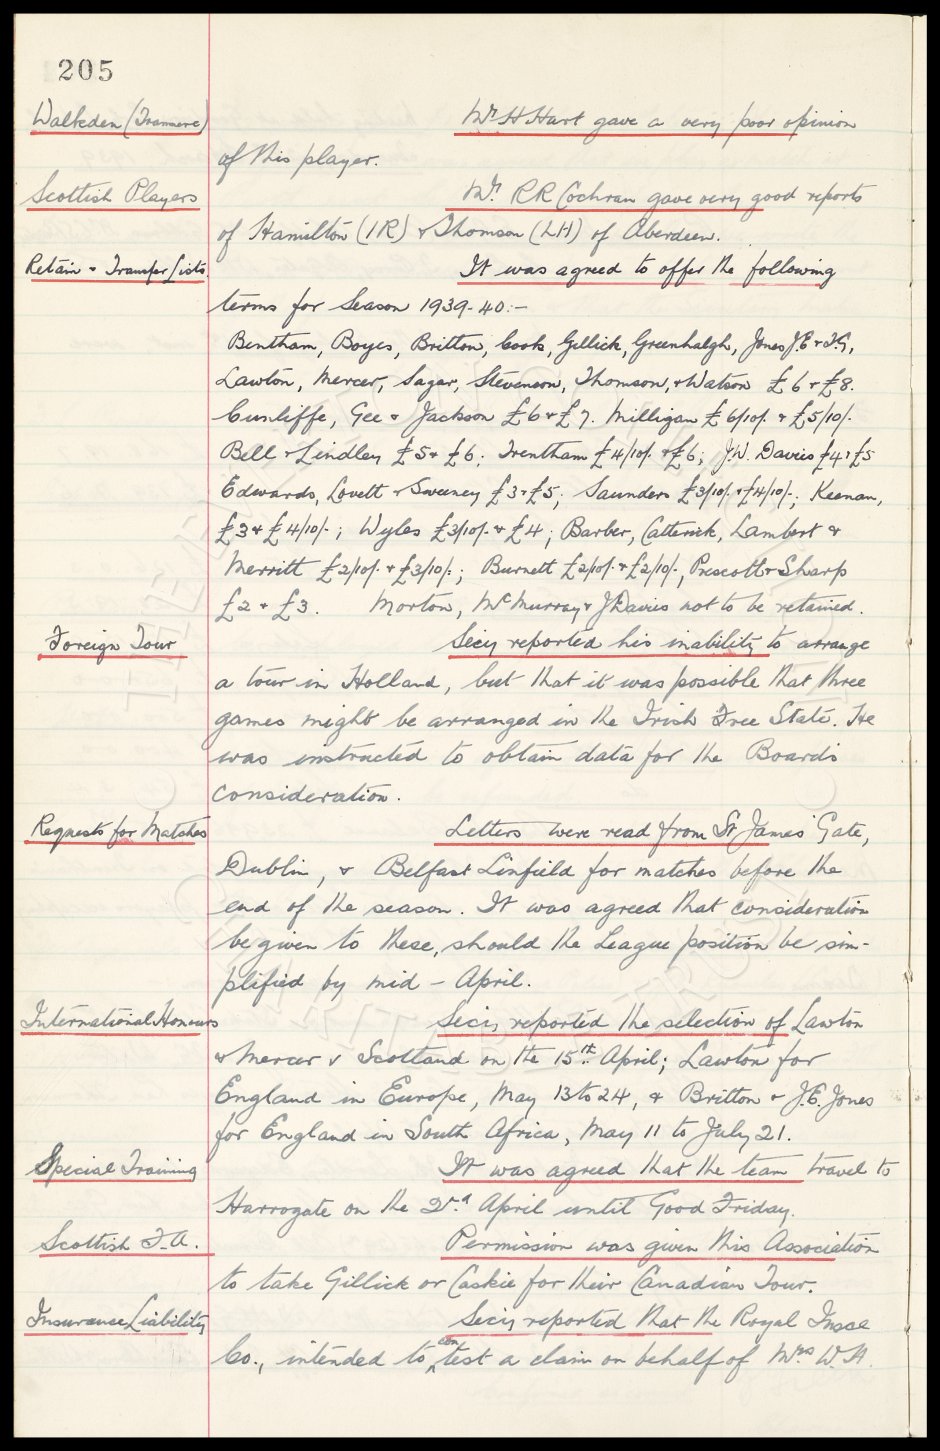 205
Walkden (Tranmere) Mr H Hart gave a very poor opinion
of this player.
Scottish Players Mr. R R Cochran gave very good reports
of Hamilton (IR) & Thomson (LH) of Aberdeen.
Retain & Transfer Lists. It was agreed to offer the following
terms for Season 1939-40:-
Bentham, Boyes, Britton, Cook, Gillick, Greenhalgh, Jones J.E & T.G,
Lawton, Mercer, Sagar, Stevenson, Thomson, & Watson £6 & £8.
Cunliffe, Gee & Jackson £6 & £7. Milligan £6/10/- & £5/10/-
Bell & Lindley £5 & £6; Trentham £4/10/- & £6; J.W. Davies £4 & £5
Edwards, Lovett & Sweeney £3 & £5; Saunders £3/10/- & £4/10/-; Keenan,
£3 & £4/10/-; Wyles £3/10/- & £4; Barber, Catterick, Lambert &
Merritt £2/10/- & £3/10/-; Burnett £2/10/- & £2/10/-, Prescott & Sharp
£2 & £3. Morton, McMurray & J Davies not to be retained.
Foreign Tour Secy reported his inability to arrange
a tour in Holland, but that it was possible that three
games might be arranged in the Irish Free State. He
was instructed to obtain data for the Board's
consideration.
Requests for Matches Letters were read from St James' Gate,
Dublin, & Belfast Linfield for matches before the
end of the season. It was agreed that consideration
be given to these, should the League position be sim-
plified by mid-April.
International Honours Secy reported the selection of Lawton
& Mercer v Scotland on the 15th April; Lawton for
England in Europe, May 13 to 24, & Britton & J.E. Jones
for England in South Africa, May 11 to July 21.
Special Training It was agreed that the team travel to
Harrogate on the 2nd April until Good Friday.
Scottish F.A. Permission was given this Association
to take Gillick or Caskie for their Canadian Tour.
Insurance Liability Secy reported that the Royal Insce
Co., intended to contest a claim on behalf of Mrs W.H.